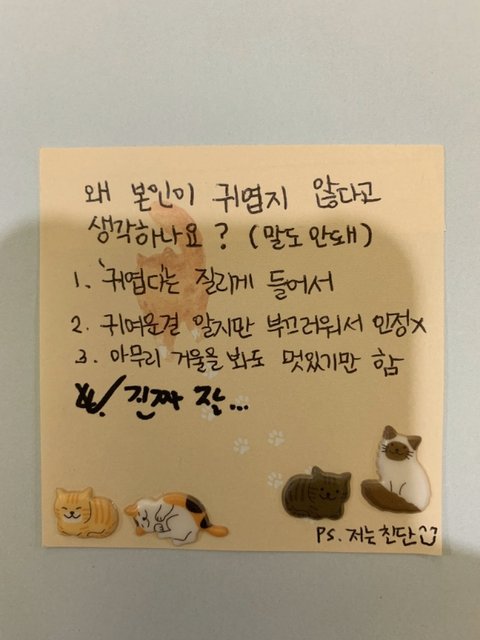 왜 본인이 귀엽지 않다고
생각하나요? (말도 안돼)
1. '귀엽다'는 질리게 들어서
2. 귀여운걸 알지만 부끄러워서 인정x
3. 아무리 거울을 봐도 멋있기만 함
진짜 잘...
PS. 저는 친단